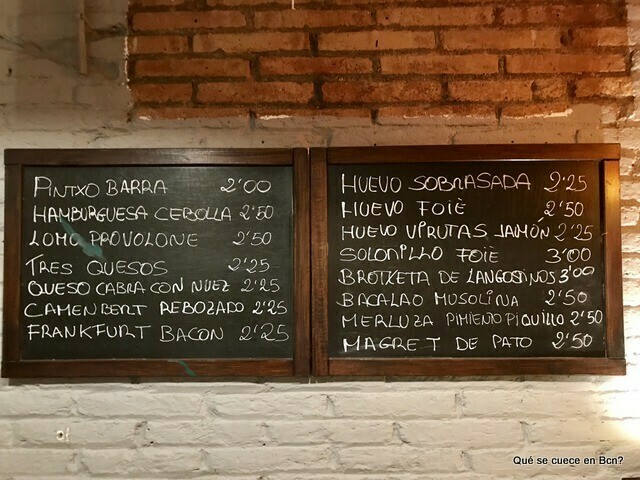 PINTXO BARRA 2'00
HAMBURGUESA CEBOLLA 2'50
LOMO PROVOLONE 2'50
TRES QUESOS 2'25
QUESO CABRA CON NUEZ 2'25
CAMENBERT REBOZADO 2'25
FRANKFURT BACON 2'25
HUEVO SOBRASADA 2'25
HUEVO FOIÈ 2'50
HUEVO VIRUTAS JAMÓN 2'25
SOLOMILLO FOIÈ 3'00
BROTXETA DE LANGOSTINOS 3'00
BACALAO MUSOLINA 2'50
MERLUZA PIMIENTO PIQUILLO 2'50
MAGRET DE PATO 2'50
Qué se cuece en Bcn?